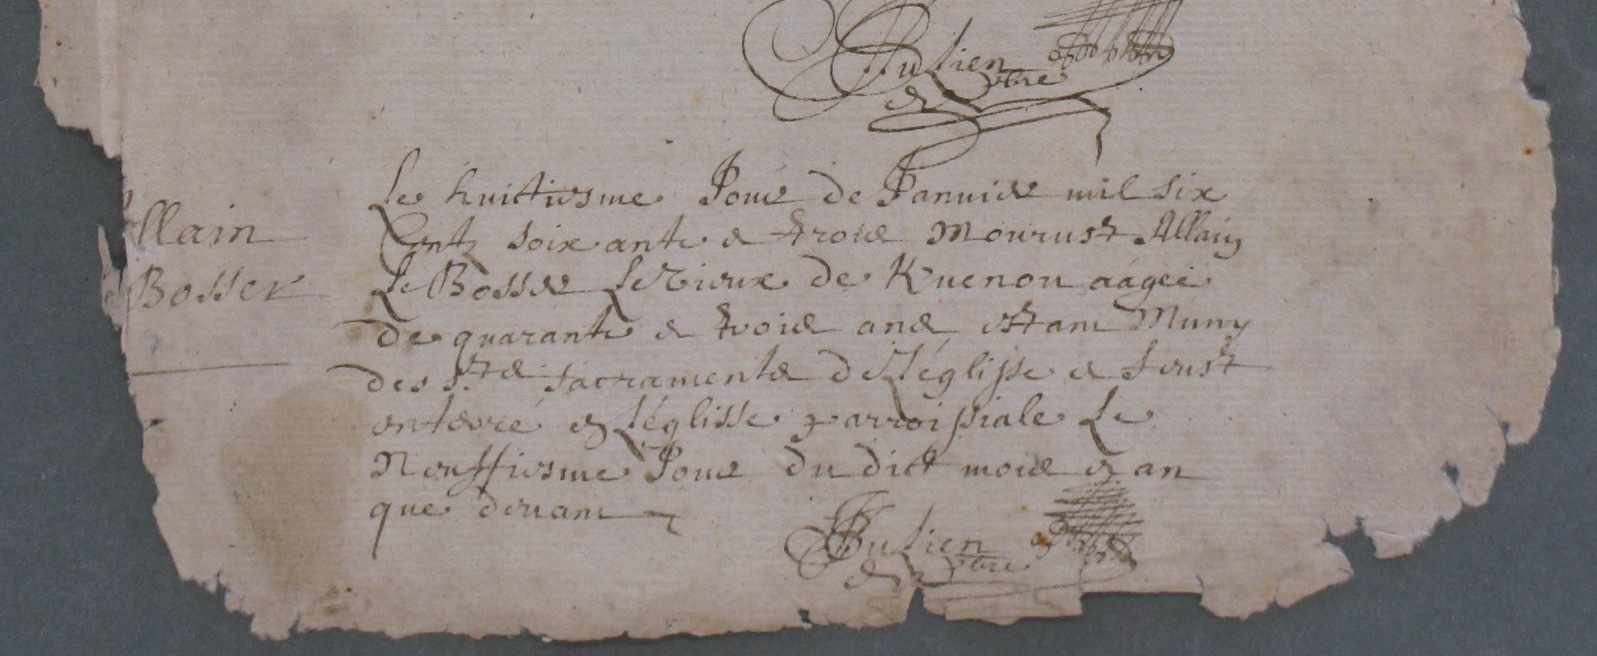 Julien
ptre
Allain
Le Bosser
Le huictiesme Jour de Janvier mil six
Centz soixante & trois Mourust Allain
Le Bosser Le Vieux de Kvenou aágeé
de quarante & trois ans estant Muny
des Sts sacraments de L'églisse & feust
enterré en L'églisse parroissiale Le
Neuffiesme Jour du dict mois & an
que devant
Julien
ptre